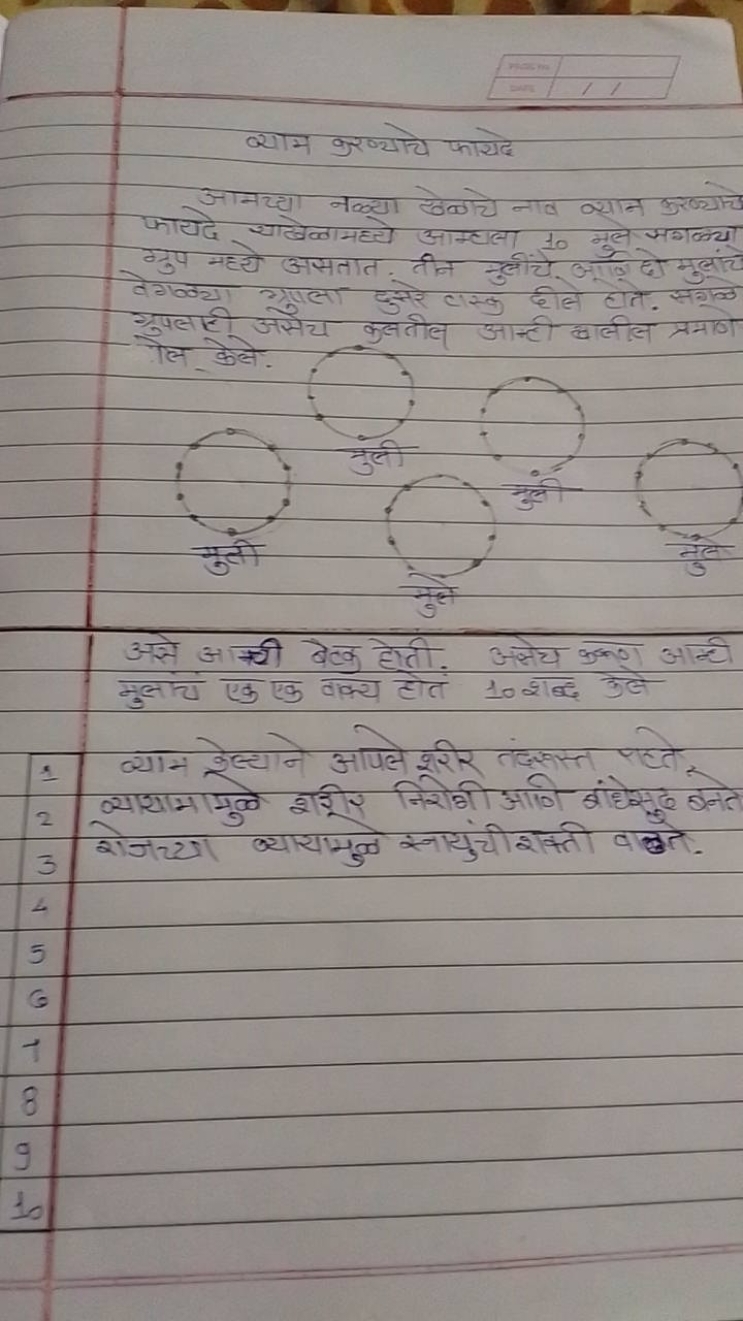 PAGE NO.
DATE / /
व्याम करण्याचे फायदे
आमच्या नळ्या खेळाचे नाव व्याम करण्याचे
फायदे याखेळामध्ये आम्हाला 10 मुले सगळ्या
ग्रुप मध्ये असतात. तीन मुलींचे. आणि दो मुलांचे
वेगळ्या ग्रुपला दुसरे टास्क दीले होते. सगळे
ग्रुपलाही असेच आम्ही खालील प्रमाणे
गोल केले.
मुली
मुली
मुली
मुले
मुले
असे आम्ही बैठक होती. असेच आम्ही
मुलांच एक एक वाक्य होत 10 शब्द केले
1 व्याम केल्याने आपले शरीर तंदरूस्त राहते,
2 व्यायामामुळे शरीर निरोगी आणि बांधेसुद बनते
3 रोजच्या व्यायामुळे स्नायुंची शक्ती वाढते.
4
5
6
7
8
9
10